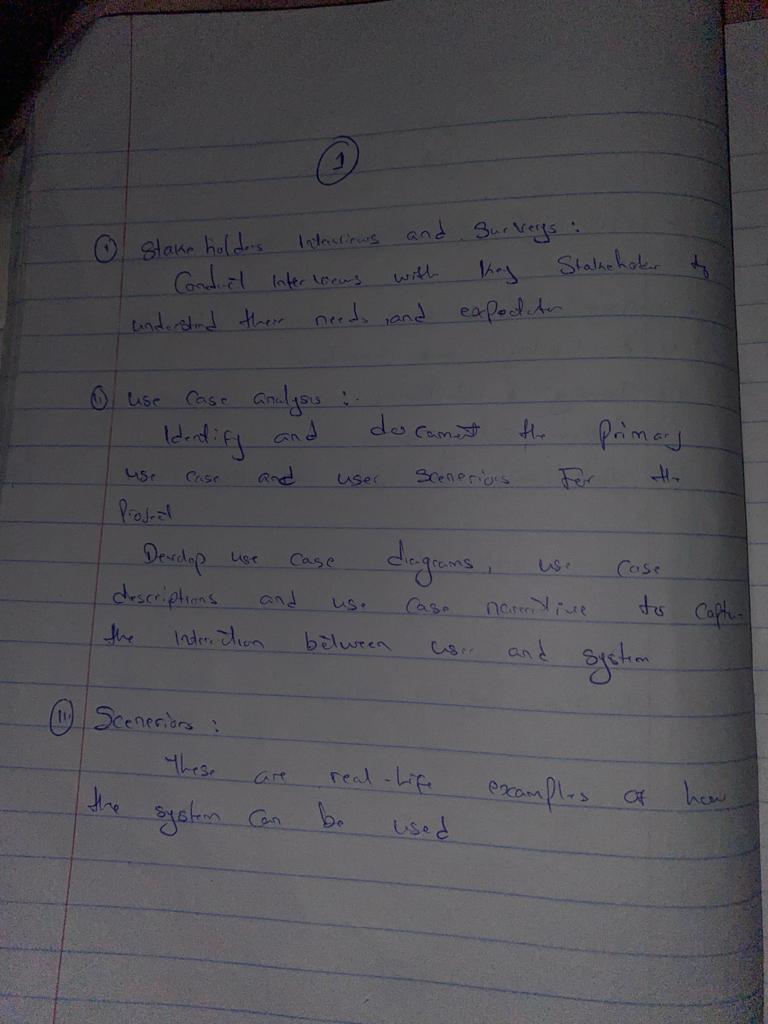 1
i Stake holders Interviews and Surveys :
Conduct Interviews with key Stakeholder to
understand their needs, and
ii use case analysis :
Identify and document the primary
use case and user sceneriors For the
Project
Develop use case diagrams, use case
descriptions and use case narrative to Captu
the Interaction between user and system
iii Sceneriors :
These are real-life examples of how
the system can be used